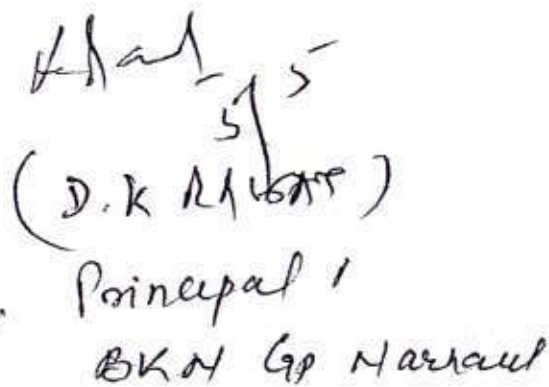 5/5
(D.K RAWAT)
Principal
BKN GP Narnaul